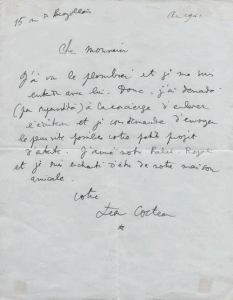 15 rue de
Cher monsieur
J'ai vu le plombier et je me suis
entendu avec lui. Donc, j'ai demandé
à la concierge d'enlever
l'écriteau et je vous demande d'envoyer
le plus vite possible votre petit projet
J'aime notre Palais Royal
et je suis enchanté d'être de notre maison
amicale.
Votre
Jean Cocteau
*